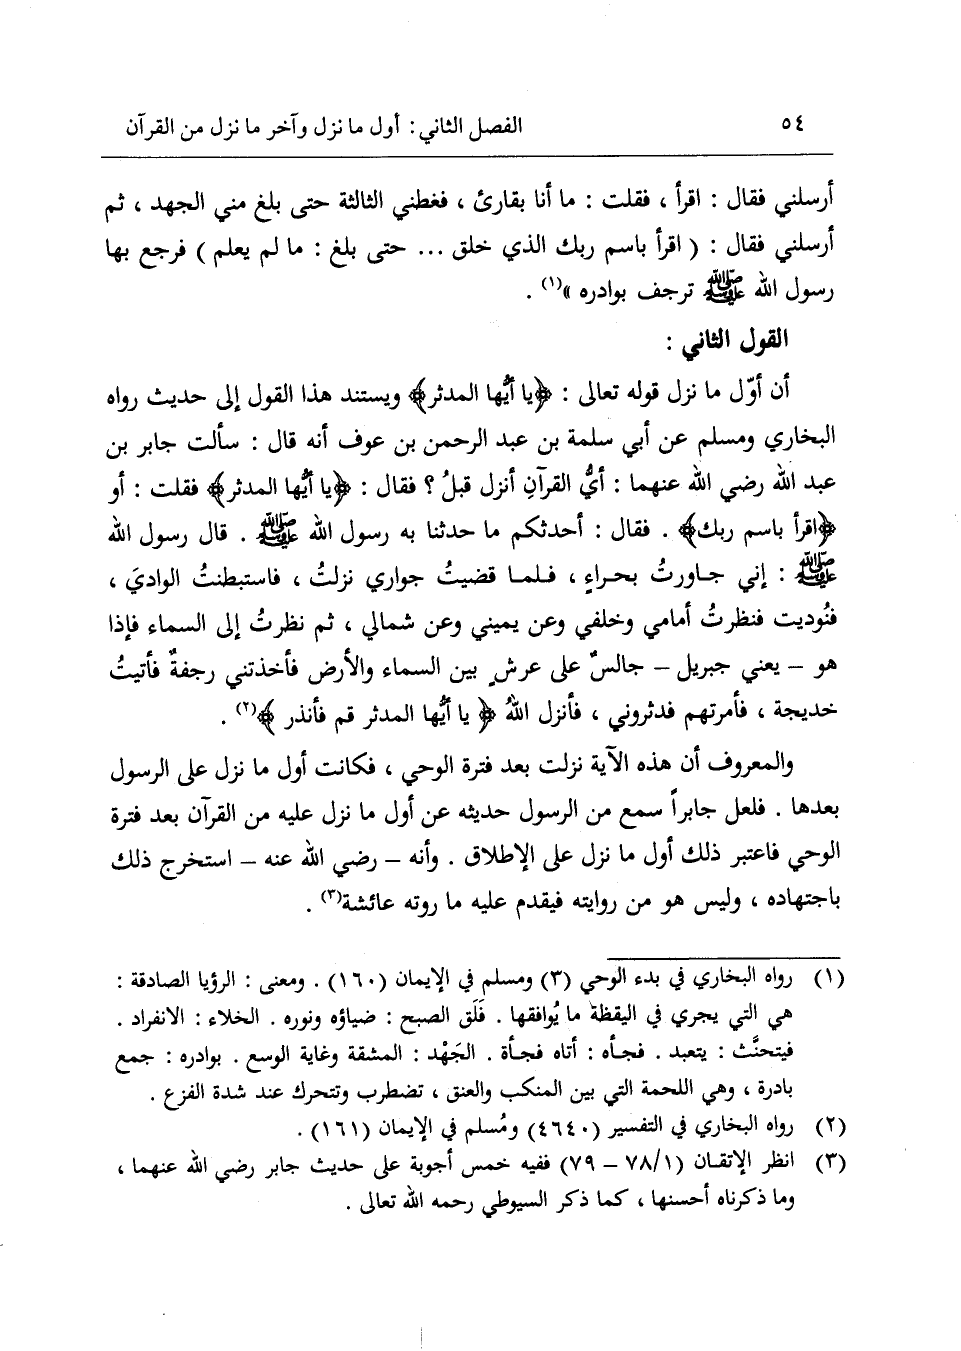 ٥٤ الفصل الثاني: أول ما نزل وآخر ما نزل من القرآن
أرسلني فقال : اقرأ ، فقلت : ما أنا بقارئ ، فغطني الثالثة حتى بلغ مني الجهد ، ثم
أرسلني فقال : ( اقرأ باسم ربك الذي خلق ... حتى بلغ : ما لم يعلم ) فرجع بها
رسول الله ﷺ ترجف بوادره »(١) .
القول الثاني :
أن أوّل ما نزل قوله تعالى : ﴿يا أيُّها المدثر﴾ ويستند هذا القول إلى حديث رواه
البخاري ومسلم عن أبي سلمة بن عبد الرحمن بن عوف أنه قال : سألت جابر بن
عبد الله رضي الله عنهما : أيُّ القرآنِ أنزل قبلُ ؟ فقال : ﴿يا أيُّها المدثر﴾ فقلت : أو
﴿اقرأ باسم ربك﴾ . فقال : أحدثكم ما حدثنا به رسول الله ﷺ . قال رسول الله
ﷺ : إني جاورتُ بحراءٍ ، فلما قضيتُ جواري نزلتُ ، فاستبطنتُ الواديَ ،
فنُوديت فنظرتُ أمامي وخلفي وعن يميني وعن شمالي ، ثم نظرتُ إلى السماء فإذا
هو – يعني جبريل – جالسٌ على عرشٍ بين السماء والأرض فأخذتني رجفةٌ فأتيتُ
خديجة ، فأمرتهم فدثروني ، فأنزل اللهُ ﴿ يا أيُّها المدثر قم فأنذر ﴾(٢) .
والمعروف أن هذه الآية نزلت بعد فترة الوحي ، فكانت أول ما نزل على الرسول
بعدها . فلعل جابراً سمع من الرسول حديثه عن أول ما نزل عليه من القرآن بعد فترة
الوحي فاعتبر ذلك أول ما نزل على الإطلاق . وأنه – رضي الله عنه – استخرج ذلك
باجتهاده ، وليس هو من روايته فيقدم عليه ما روته عائشة(٣) .
(١) رواه البخاري في بدء الوحي (٣) ومسلم في الإيمان (١٦٠) . ومعنى : الرؤيا الصادقة :
هي التي يجري في اليقظة ما يُوافقها . فَلَق الصبح : ضياؤه ونوره . الخلاء : الانفراد .
فيتحنَّث : يتعبد . فجأه : أتاه فجأة . الجَهْد : المشقة وغاية الوسع . بوادره : جمع
بادرة ، وهي اللحمة التي بين المنكب والعنق ، تضطرب وتتحرك عند شدة الفزع .
(٢) رواه البخاري في التفسير (٤٦٤٠) ومُسلم في الإيمان (١٦١) .
(٣) انظر الإتقان (٧٨/١ – ٧٩) ففيه خمس أجوبة على حديث جابر رضي الله عنهما ،
وما ذكرناه أحسنها ، كما ذكر السيوطي رحمه الله تعالى .